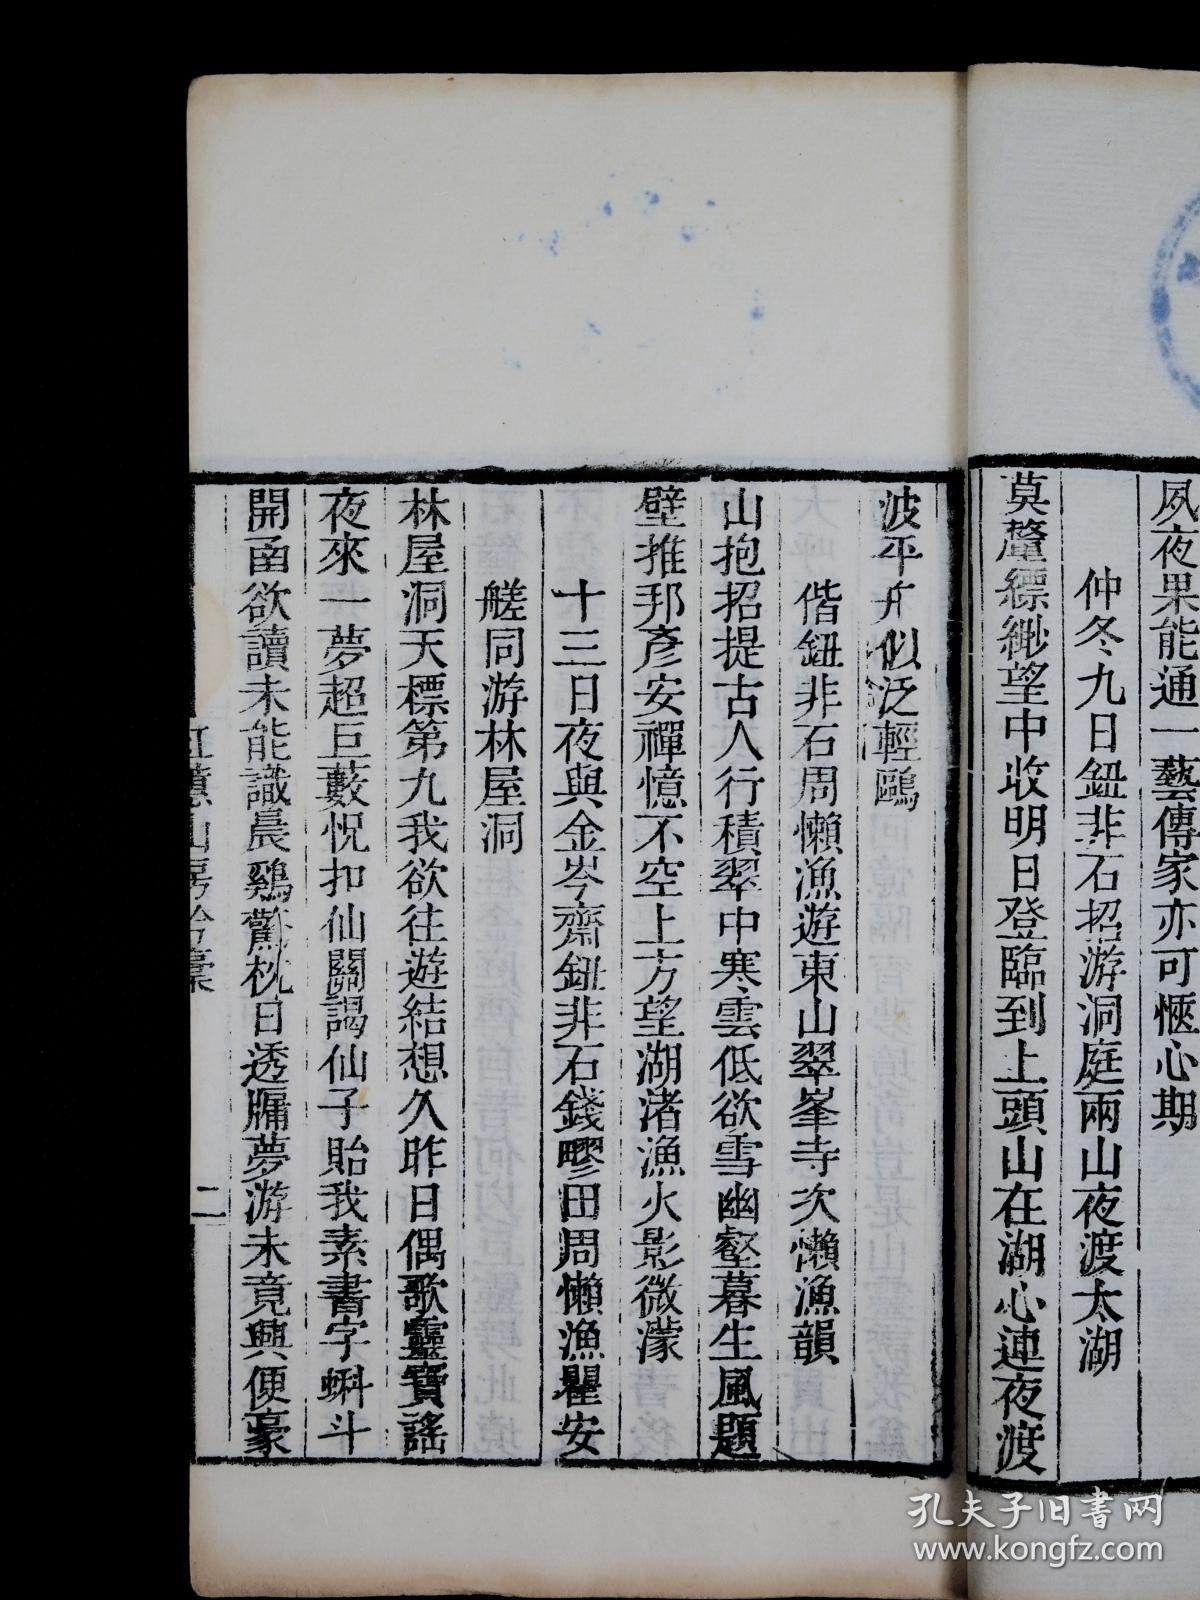 夙夜果能通一藝傳家亦可愜心期
仲冬九日鈕非石招游洞庭兩山夜渡太湖
莫釐縹緲望中收明日登臨到上頭山在湖心連夜渡
波平舟似泛輕鷗
偕鈕非石周懶漁遊東山翠峯寺次懶漁韻
山抱招提古人行積翠中寒雲低欲雪幽壑暮生風題
壁推邦彥安禪憶不空上方望湖渚漁火影微濛
十三日夜與金岑齋鈕非石錢醪田周懶漁瞿安
艖同游林屋洞
林屋洞天標第九我欲往遊結想久昨日偶歌靈寶謠
夜來一夢超巨藪怳扣仙關謁仙子貽我素書字蝌斗
開函欲讀未能識晨鷄驚枕日透牖夢游未竟興便豪
紅蕙山房吟稾
二
孔夫子旧书网
www.kongfz.com